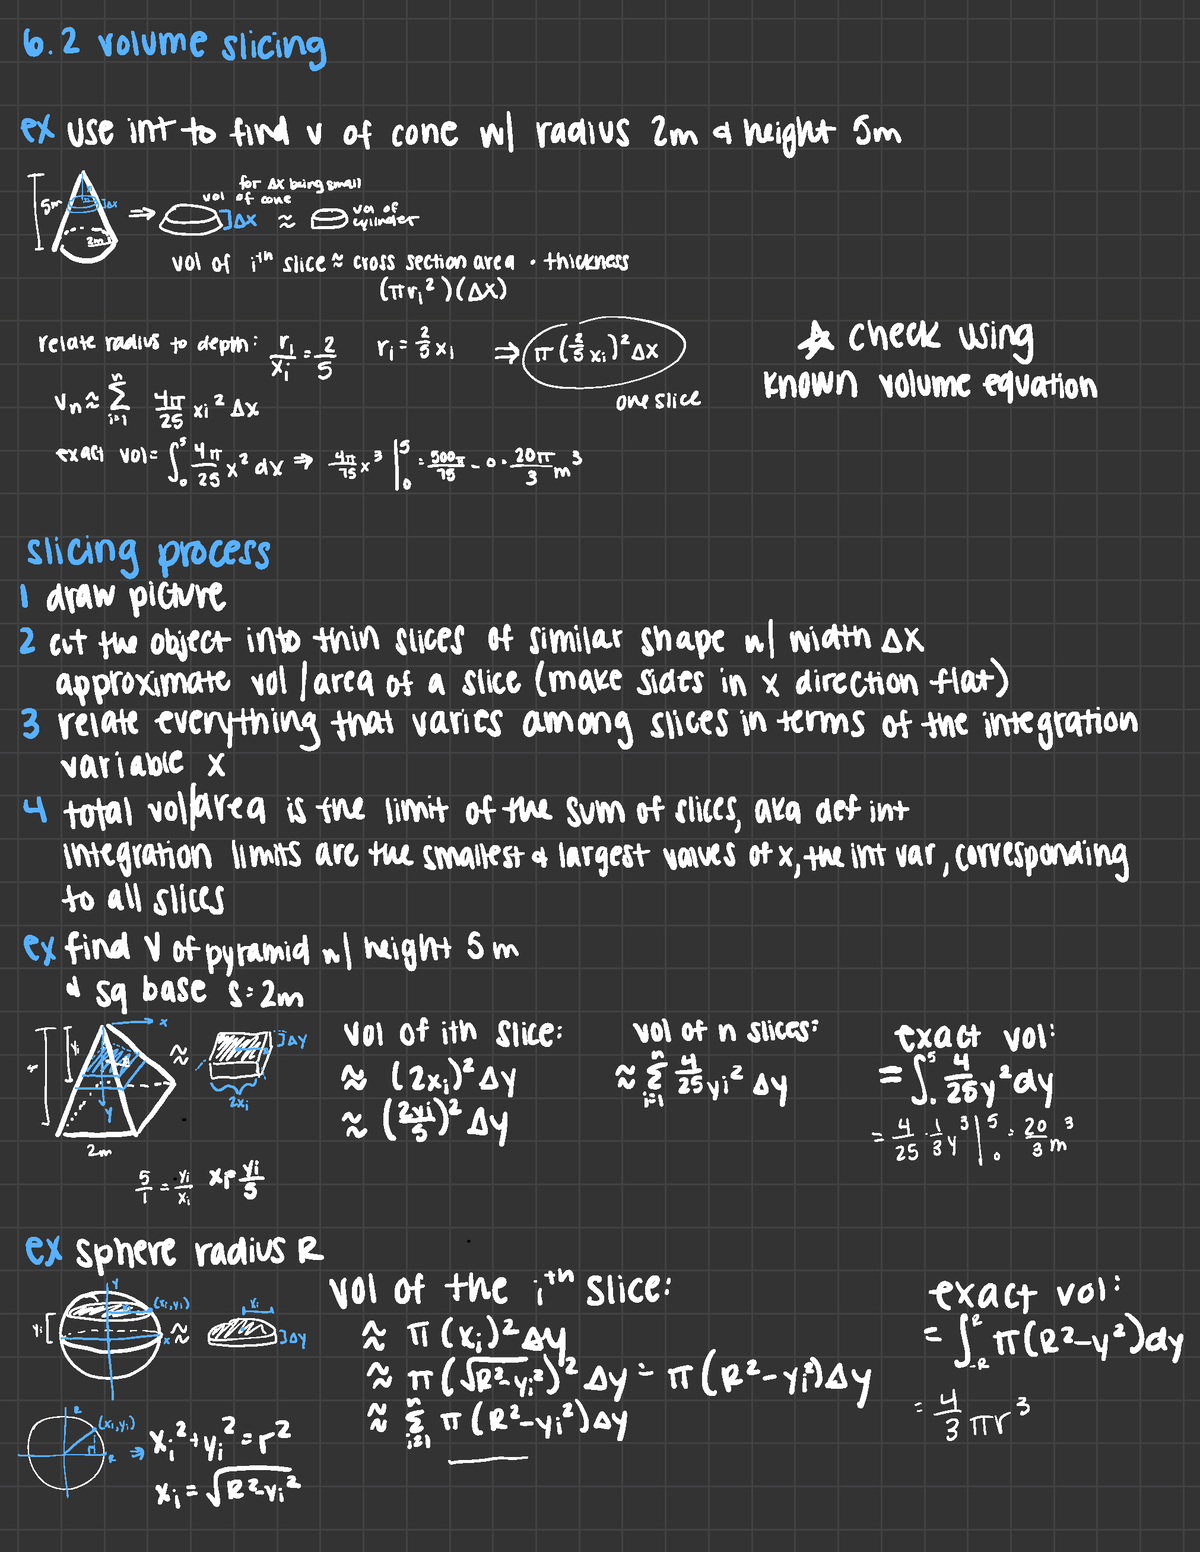 6.2 volume slicing
ex use int to find v of cone w/ radius 2m & height 5m
for Δx being small
vol of cone
5m
Δx
⇒
]Δx ≈
vol of cylinder
2m
vol of iᵗʰ slice ≈ cross section area · thickness
(πrᵢ²)(Δx)
relate radius to depth: rᵢ/xᵢ = 2/5 rᵢ = 2/5 xᵢ ⇒ π(2/5 xᵢ)² Δx
one slice
☆ check using
known volume equation
Vn ≈ Σⁿᵢ₌₁ 4π/25 xi² Δx
exact vol = ∫₀⁵ 4π/25 x² dx ⇒ 4π/75 x³ |₀⁵ = 500π/75 - 0 = 20π/3 m³
slicing process
1 draw picture
2 cut the object into thin slices of similar shape w/ width Δx
approximate vol/area of a slice (make sides in x direction flat)
3 relate everything that varies among slices in terms of the integration
variable x
4 total vol/area is the limit of the sum of slices, aka def int
integration limits are the smallest & largest values of x, the int var, corresponding
to all slices
ex find V of pyramid w/ height 5m
& sq base s=2m
x
yi
y
2m
≈
]Δy
2xi
5/1 = yi/xi xi= yi/5
vol of ith slice:
≈ (2xi)² Δy
≈ (2yi/5)² Δy
vol of n slices:
≈ Σⁿᵢ₌₁ 4/25 yi² Δy
exact vol:
= ∫₀⁵ 4/25 y² dy
= 4/25 · 1/3 y³ |₀⁵ = 20/3 m³
ex sphere radius R
y
(xi,yi)
yi
x
≈
xi
]Δy
R
(xi,yi)
R
⇒ xi² + yi² = r²
xi = √R²-yi²
vol of the iᵗʰ slice:
≈ π(xi)² Δy
≈ π(√R²-yi²)² Δy = π(R²-yi²)Δy
≈ Σⁿᵢ₌₁ π(R²-yi²)Δy
exact vol:
= ∫₋ᴿᴿ π(R²-y²)dy
= 4/3 πr³